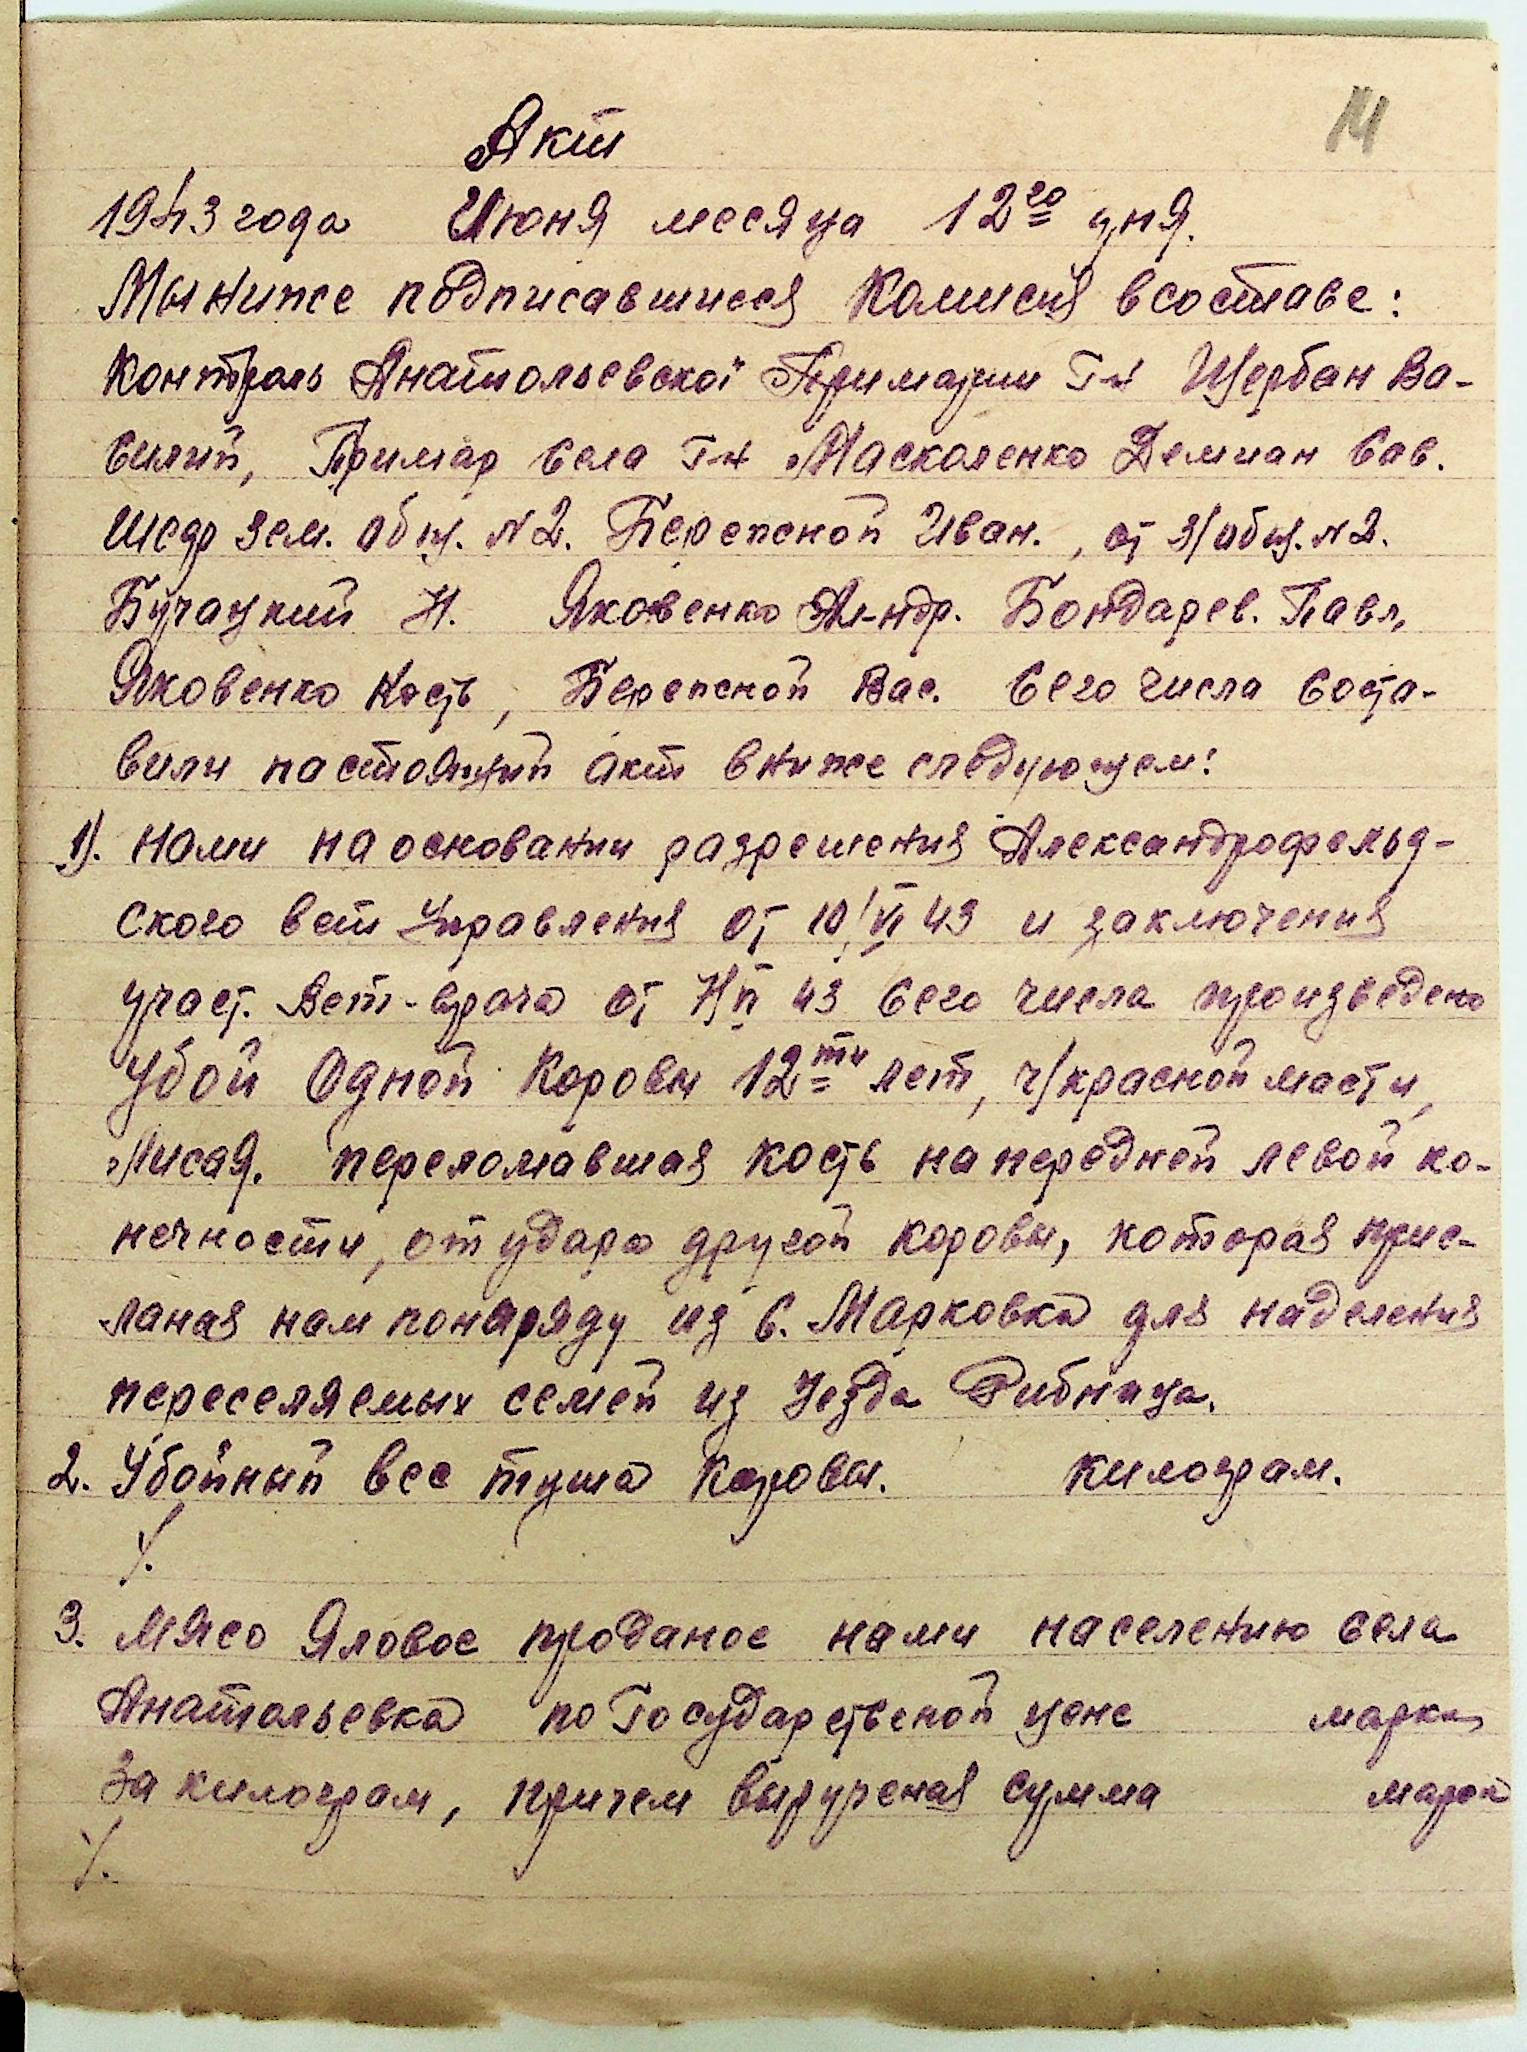 14
Акт
1943 года Июня месяца 12го дня.
Мы ниже подписавшиеся Комисия в составе:
Контроль Анатольевской Примарии Г-н Щербан Ва-
силий, Примар села Г-н Масколенко Демиан Сав.
Шеф Зем. Общ. N 2. Берепсной Иван., от З/общ. N 2.
Бучацкий Н. Яковенко Ал-ндр. Бондарев. Павл,
Яковенко Кость, Берепсной Вас. Сего числа соста-
вили настоящий акт в ниже следующем:
1). Нами на основании разрешения Александрофельд-
ского вет Управления от 10/VI 43 и заключения
участ. Вет-врача от 43 Сего числа произведено
убой Одной Коровы 12ти лет, ч/красной масти,
Лисая. переломавшая кость на передней левой ко-
нечности, от удара другой коровы, которая прис-
ланая нам по наряду из с. Марковка для наделения
переселяемых семей из Уезда Рибница.
2. Убойный вес туша Коровы. килограм.
/.
3. Мясо Яловое проданое нами населению села
Анатольевка по Государственой цене марки
За килограм, причем вырученая сумма марок
/.